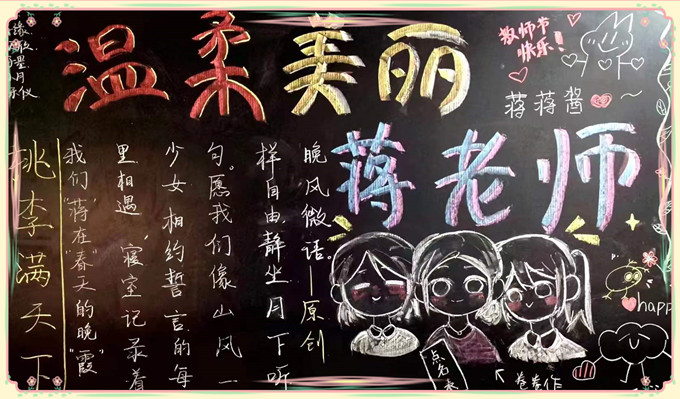 温柔美丽
蒋老师
教师节
快乐!
蒋蒋酱
桃李满天下
我们“蒋”在“春”天的晚“霞”
里相遇,寝室记录着
少女相约誓言的每
句。愿我们像山风一
样自由,静坐月下听
晚风微语。—原创
点名表
卷卷作
happ